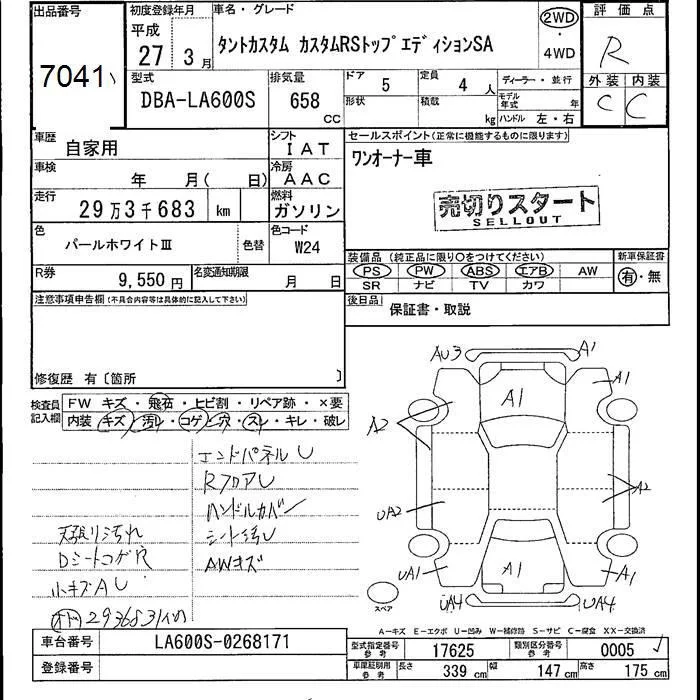 出品番号
7041
初度登録年月
平成
27 3月
車名・グレード
タントカスタム カスタムRSトップエディションSA
2WD
・
4WD
評価点
R
外装 内装
C C
型式
DBA-LA600S
排気量
658
CC
ドア
5
定員
4 人
形状
積載
kg
ディーラー・並行
モデル年式 年
ハンドル 左・右
車歴
自家用
シフト
IAT
車検
年 月( 日)
冷房
AAC
走行
29万3千683 km
燃料
ガソリン
色
パールホワイトⅢ
色替
色コード
W24
R券
9,550円
名変通知期限
月 日
セールスポイント(正常に機能するものに限ります)
ワンオーナー車
売切りスタート
SELLOUT
装備品(純正品に限り○をつけてください)
PS PW ABS エアB AW
SR ナビ TV カワ
新車保証書
有・無
後日品
保証書・取説
注意事項申告欄(不具合内容等は具体的に記入して下さい)
修復歴 有〔箇所 〕
検査員記入欄
FW キズ・飛石・ヒビ割・リペア跡・×要
内装 キズ・汚レ・コゲ・穴・スレ・キレ・破レ
エンドパネルU
RフロアU
ハンドルカバー
天張り汚れ
シート汚U
Dシートコゲ穴
AWキズ
小キズAU
AU3
A1
A1
A1
A2
A2
UA2
UA1
A1
A1
UA4
UA4
スペア
A-キズ E-エクボ U-凹み W-補修跡 S-サビ C-腐食 XX-交換済
車台番号
LA600S-0268171
登録番号
型式指定番号
参考
17625
類別区分番号
参考
0005
車庫証明用
参考
長さ 339 cm
幅 147 cm
高さ 175 cm